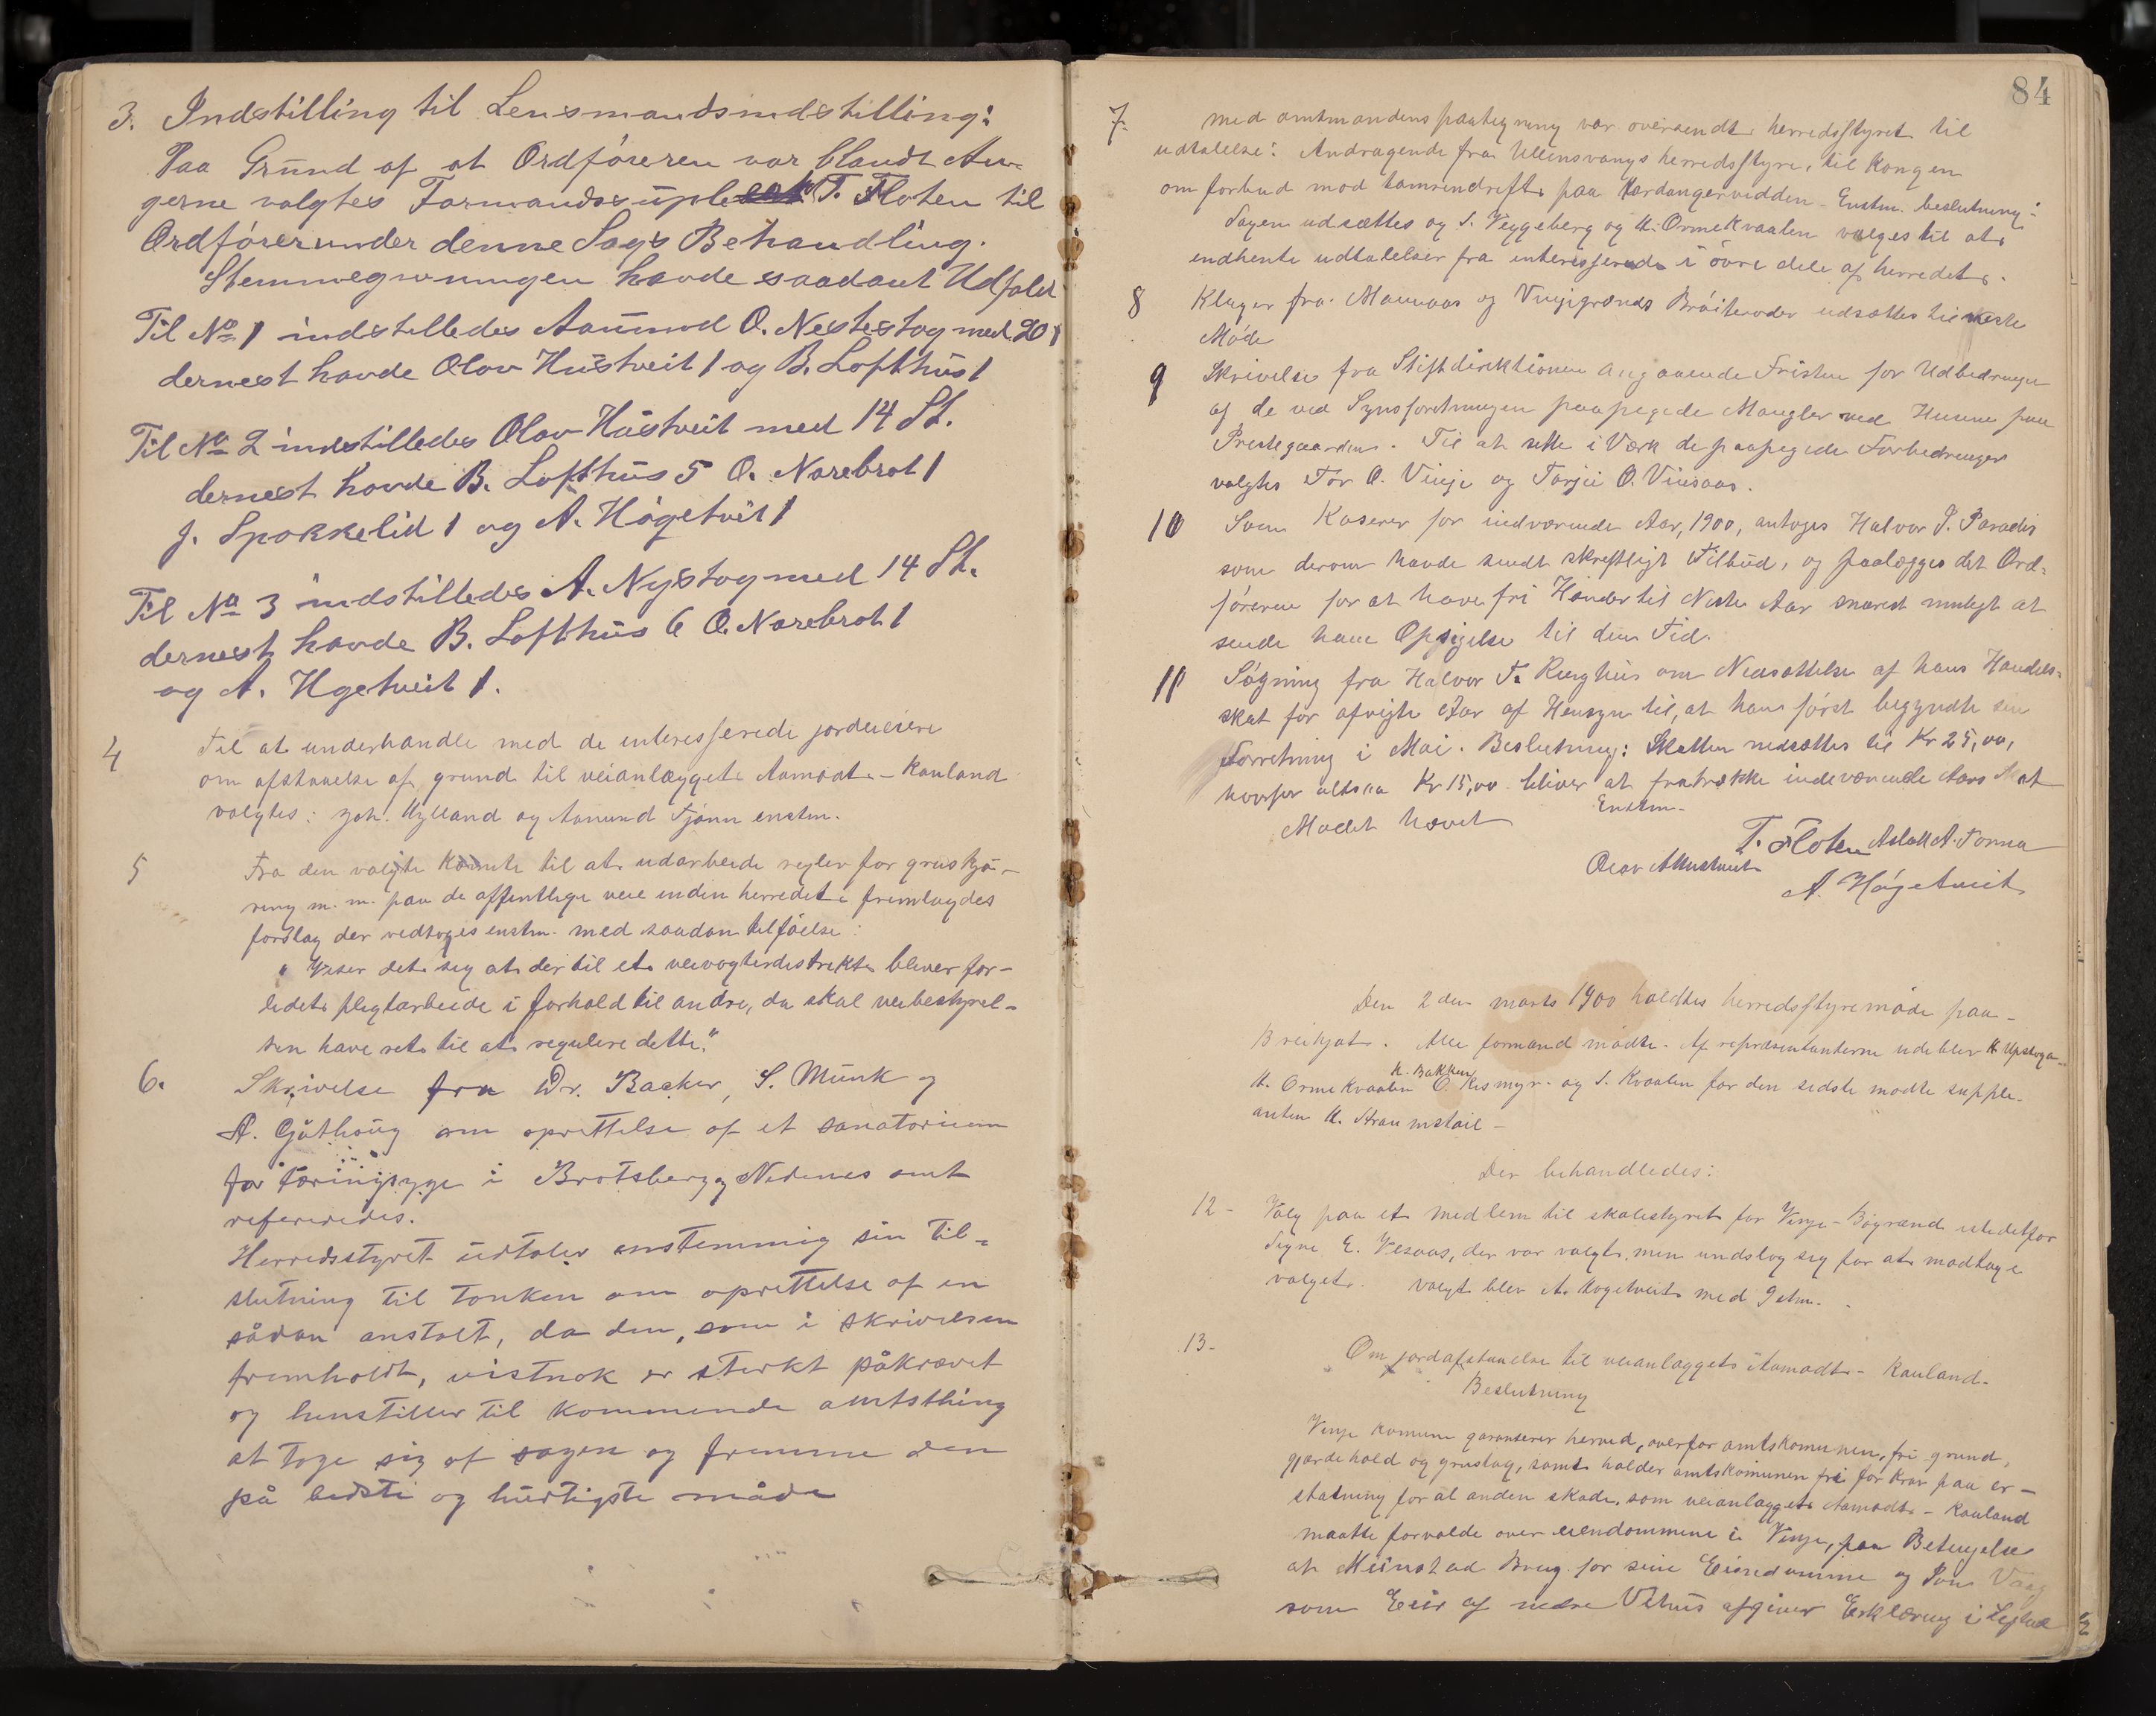 3. Indstilling til Lensmandsindstilling:
Paa Grund af at Ordføreren var blandt An-
gerne valgtes Formandssuple T. Floten til
Ordfører under denne Sags Behandling.
Stemmegivningen havde saadant Udfald
Til No 1 indstilledes Aamund O. Nestestog med 20
dernest havde Olav Hustveit 1 og B. Lofthus 1
Til No 2 indstilledes Olav Hustveit med 14 St.
dernest havde B. Lofthus 5 O. Norebrot 1
J. Spokkelid 1 og A. Høgetveit 1
Til No 3 indstilledes A. Nystog med 14 St.
dernest havde B. Lofthus 6 O. Norebrot 1
og A. Hgetveit 1.
4 Til at underhandle med de interesserede jordeiere
om afstaaelse af grund til veianlægget Aamodt - Rauland
valgtes: Joh. Hylland og Aamund Tjønn enstm.
5 Fra den valgte komite til at udarbeide regler for gruskjø-
ring m. m. paa de offentlige veie inden herredet fremlagdes
forslag der vedtoges enstm. med saadan tilføielse:
"Viser det sig at der til et veivogterdistrikt bliver for-
lidet pligtarbeide i forhold til andre, da skal veibestyrel-
sen have ret til at regulere dette."
6. Skrivelse fra Dr. Backer, S. Munk og
A. Gåthaug om oprettelse af et sanatorium
for tæringsyge i Bratsberg og Nedenes amt
refereredes.
Herredsstyret udtaler enstemmig sin til-
slutning til tanken om oprettelse af en
sådan anstalt, da den, som i skrivelsen
fremholdt, vistnok er sterkt påkrævet
og henstiller til kommende amtsthing
at tage sig af sagen og fremme den
på bedste og hurtigste måde
84
7. Med amtmandens paategning var oversendt herredsstyret til
udtalelse: Andragende fra Ullensvangs herredsstyre, til kongen
om forbud mod tamrendrift paa Hardangervidden - Enstm. beslutning:
Sagen udsættes og S. Veggeberg og H. Ormekvaalen vælges til at
indhente udtalelser fra interesserede i øvre dele af herredet.
8 Klager fra Mannaas og Vinjegrænds Bröiteroder udsættes til neste
Møde
9 Skrivelse fra Stiftdirektionen angaaende Fristen for Udbedringen
af de ved Synsforretningen paapegede Mangler ved Husene paa
Prestegaarden. Til at sette i Verk de paapegede Forbedringer
valgtes Tor O. Vinje og Tarjei O. Vinsaas.
10 Som Kaserer for indværende Aar, 1900, antages Halvor T. Paradis
som derom havde sendt skriftligt Tilbud, og paalægges det Ord-
føreren for at have fri Hænder til Neste Aar snarest muligt at
sende ham Opsigelse til den Tid.
11 Søgning fra Halvor T. Ringhus om Nedsættelse af hans Handels-
skat for afvigte Aar af Hensyn til, at han først begyndte sin
Forretning i Mai. Beslutning: Skatten nedsættes til Kr 25,00,
hvorfor altsaa Kr 15,00 bliver at fratrække indeværende Aars Skat
Enstm.
Mødet hævet
T. Floten Aslak A. Tonna
Olav A Hustveit
A. Høgetveit
Den 2den marts 1900 holdtes herredsstyremøde paa
Breikjøt. Alle formænd mødte. Af repræsentanterne udeblev H. Upstoga
H. Bakken
H. Ormekvaalen O. Resmyr. og S. Kvaalen for den sidste mødte supple-
anten H. Straumstøil -
Der behandledes:
12 - Valg paa et medlem til skolestyret for Vinje - Bøgrænd istedetfor
Signe E. Vesaas, der var valgt, men undslog sig for at modtage
valget. Valgt blev A. Høgetveit med 9 stm.
13 - Om jordafstaaelse til veianlægget Aamodt - Rauland -
Beslutning
Vinje komune garanterer herved, overfor amtskomunen, fri grund,
gjærdehold og grustag, samt holder amtskomunen fri for krav paa er-
statning for al anden skade, som veianlægget Aamodt - Rauland
maatte forvolde over eiendommene i Vinje, paa Betingelse
at Meinstad Brug for sine Eiendomme og Jon Vaag
som Eier af nedre Vehus afgiver Erklæring i